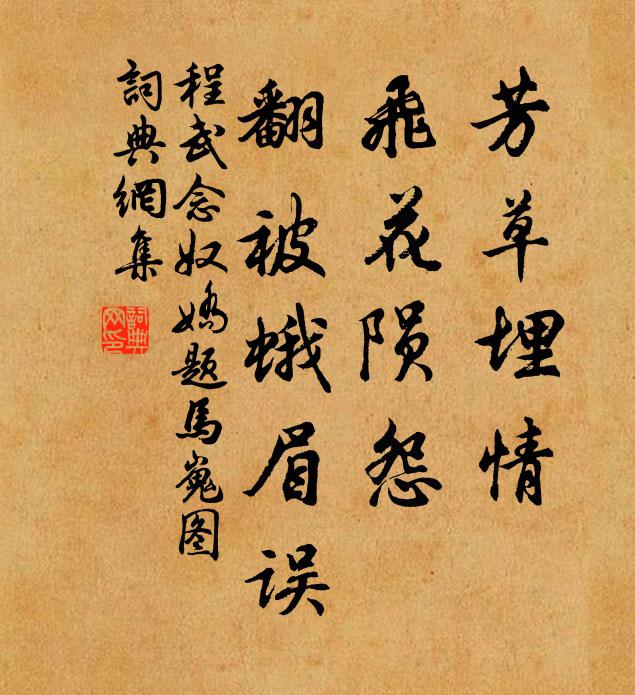 芳草埋情
飛花陨怨
翻被蛾眉误
程武念奴嬌題馬嵬图
詞典網集
詞典
网印